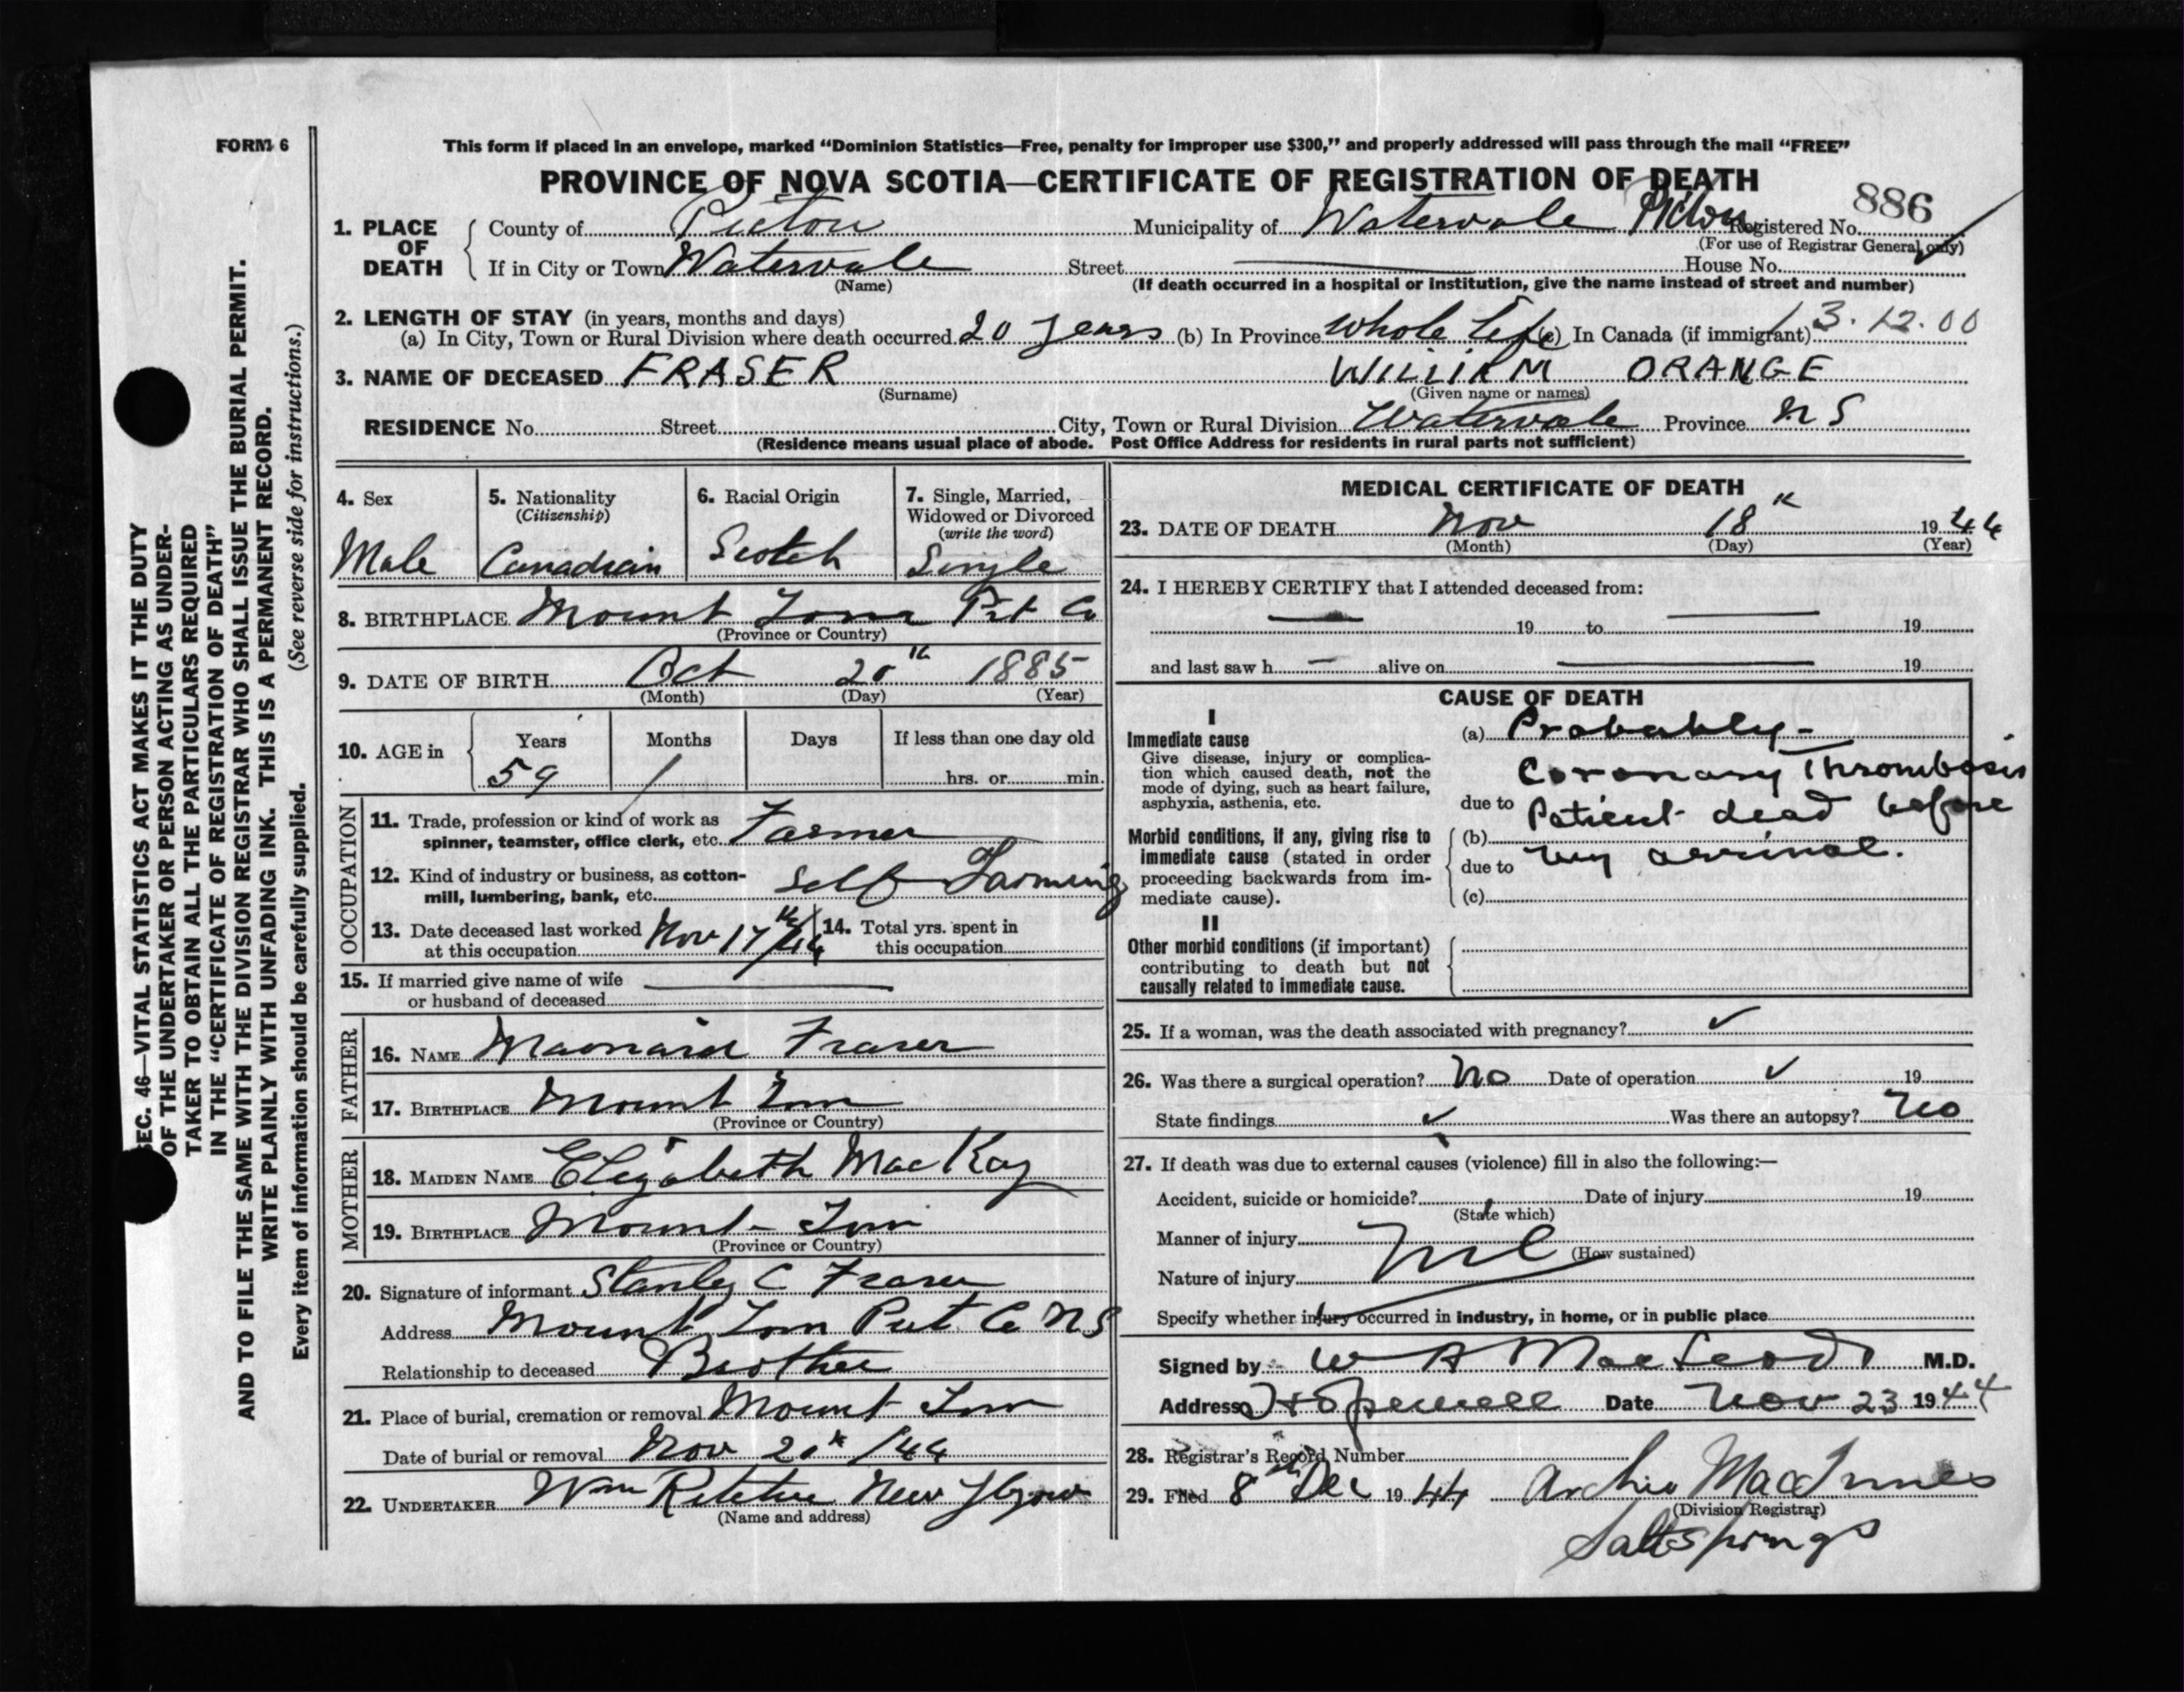 FORM 6
This form if placed in an envelope, marked “Dominion Statistics—Free, penalty for improper use $300,” and properly addressed will pass through the mail “FREE”
PROVINCE OF NOVA SCOTIA—CERTIFICATE OF REGISTRATION OF DEATH
886
1. PLACE OF DEATH County of Pictou Municipality of Watervale Pictou Registered No.
(For use of Registrar General only)
If in City or Town Watervale Street House No.
(Name)
(If death occurred in a hospital or institution, give the name instead of street and number)
2. LENGTH OF STAY (in years, months and days)
(a) In City, Town or Rural Division where death occurred 20 years (b) In Province whole Life (c) In Canada (if immigrant) 13.12.00
3. NAME OF DECEASED FRASER WILLIAM ORANGE
(Surname) (Given name or names)
RESIDENCE No. Street City, Town or Rural Division Watervale Province N S
(Residence means usual place of abode. Post Office Address for residents in rural parts not sufficient)
4. Sex
Male
5. Nationality
(Citizenship)
Canadian
6. Racial Origin
Scotch
7. Single, Married,
Widowed or Divorced
(write the word)
Single
8. BIRTHPLACE Mount Thom Pict Co
(Province or Country)
9. DATE OF BIRTH Oct 20th 1885
(Month) (Day) (Year)
10. AGE in Years Months Days If less than one day old
59 1 hrs. or min.
OCCUPATION
11. Trade, profession or kind of work as
spinner, teamster, office clerk, etc. Farmer
12. Kind of industry or business, as cotton-
mill, lumbering, bank, etc. Self Farming
13. Date deceased last worked
at this occupation Nov 17th/44
14. Total yrs. spent in
this occupation
15. If married give name of wife
or husband of deceased
FATHER
16. NAME Fraser
17. BIRTHPLACE Mount Thom
(Province or Country)
MOTHER
18. MAIDEN NAME Elizabeth MacKay
19. BIRTHPLACE Mount Thom
(Province or Country)
20. Signature of informant Stanley C Fraser
Address Mount Thom Pict Co N S
Relationship to deceased Brother
21. Place of burial, cremation or removal Mount Thom
Date of burial or removal Nov 20th/44
22. UNDERTAKER Wm New Glasgow
(Name and address)
MEDICAL CERTIFICATE OF DEATH
23. DATE OF DEATH Nov 18th 1944
(Month) (Day) (Year)
24. I HEREBY CERTIFY that I attended deceased from:
19 to 19
and last saw h alive on 19
CAUSE OF DEATH
I
Immediate cause
Give disease, injury or complica-
tion which caused death, not the
mode of dying, such as heart failure,
asphyxia, asthenia, etc.
(a) Probably -
Coronary Thrombosis
due to Patient dead before
Morbid conditions, if any, giving rise to
immediate cause (stated in order
proceeding backwards from im-
mediate cause).
(b)
due to my arrival.
(c)
II
Other morbid conditions (if important)
contributing to death but not
causally related to immediate cause.
25. If a woman, was the death associated with pregnancy? ✓
26. Was there a surgical operation? No Date of operation ✓ 19
State findings ✓ Was there an autopsy? No
27. If death was due to external causes (violence) fill in also the following:—
Accident, suicide or homicide? Date of injury 19
(State which)
Manner of injury Nil
(How sustained)
Nature of injury
Specify whether injury occurred in industry, in home, or in public place
Signed by W A MacLeod M.D.
Address Hopewell Date Nov 23 1944
28. Registrar’s Record Number
29. Filed 8th Dec 1944 Archie MacInnes
(Division Registrar)
Saltsprings
SEC. 46—VITAL STATISTICS ACT MAKES IT THE DUTY
OF THE UNDERTAKER OR PERSON ACTING AS UNDER-
TAKER TO OBTAIN ALL THE PARTICULARS REQUIRED
IN THE “CERTIFICATE OF REGISTRATION OF DEATH”
AND TO FILE THE SAME WITH THE DIVISION REGISTRAR WHO SHALL ISSUE THE BURIAL PERMIT.
WRITE PLAINLY WITH UNFADING INK. THIS IS A PERMANENT RECORD.
Every item of information should be carefully supplied. (See reverse side for instructions.)